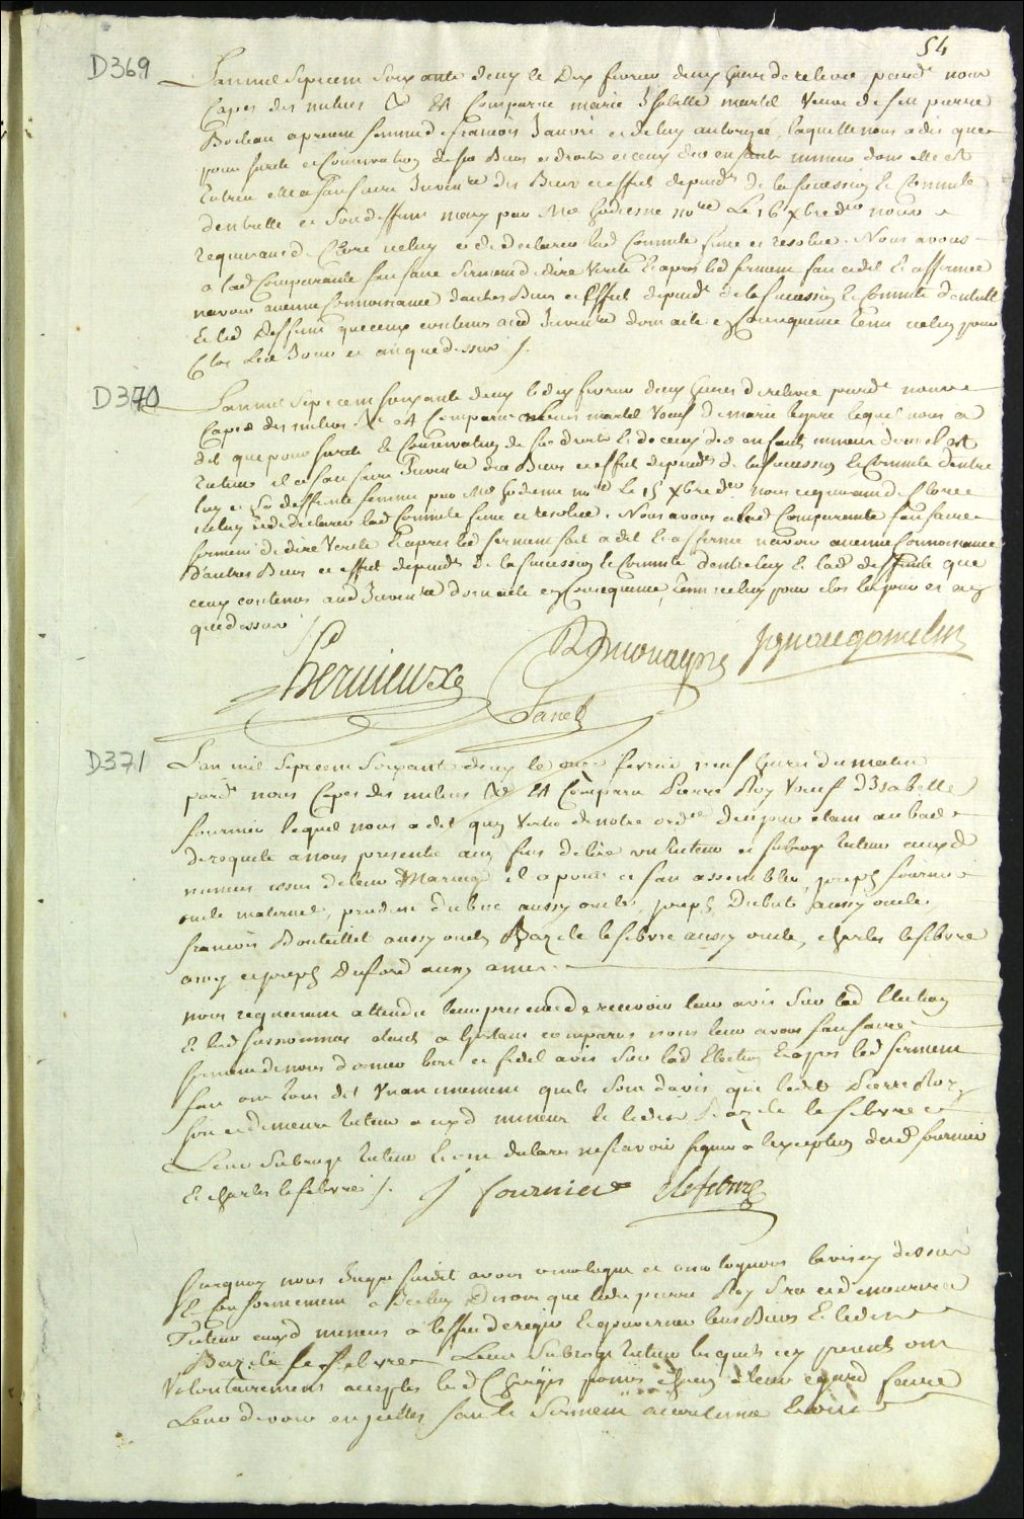 54
D369
Lan mil Sept cent Soixante deux le Dix fevrier deux heures de relevé pard.t nous
Capes des milices &c Est Comparue marie Isabelle martel Veuve de feu pierre
Boileau a present femme de francois Janvri et de luy autorisée, laquelle nous a dit que
pour sureté et Conservation de ses Biens et droits et ceux des enfants mineurs dont elle est
tutrice elle a fait faire Inven.re des Biens et effets depend.ts de la succession & Commté
dentrelle et Son deffunt mary par Me hodiesne no.re Le 16 xbre d.er nous
requerant de Clore iceluy et de declarer lad Commté finie et resolue. Nous avons
a lad Comparante fait faire Serment de dire Verité & apres led serment fait a dit & affirmé
navoir aucune Connoissance dautres Biens et Effets depend.ts de la succession & Commté dentrelle
& led Deffunt que ceux contenus aud Inven.re dont acte en Consequence tenu iceluy pour
Clos Led Jour et an que dessus /.
D370
Lan mil Sept cent soixante deux le dix fevrier deux heures de relevé pard.t nous
Capes des milices &c est Comparu martel Veuf de marie lequel nous a
dit que pour sureté & Conservation de ses droits & de ceux des enfants mineurs dont il est
tuteur il a fait faire Inven.re des Biens et effets depend.ts de la succession & Commté dentre
luy et sa deffunte femme par Me hodiesne no.re Le 15 xbre d.er nous requerant de Clore
iceluy & de declarer lad Commté finie et resolue. Nous avons a lad Comparante fait faire
serment de dire Verité & apres led serment fait a dit & affirmé navoir aucune Connoissance
d'autres Biens et effets depend.ts de la succession & Commté dentre luy & lad deffunte que
ceux contenus aud Inven.re dont acte en Consequence, tenu iceluy pour clos les jour et an
que dessus /
hervieux
Ignace gamelin
Panet
D371
Lan mil Sept cent Soixante deux le onze fevrier neuf heures du matin
pard.t nous Capes des milices &c Est Comparu Pierre Roy Veuf d'Isabelle
fournier lequel nous a dit quen Vertu de notre ord.ce de ce jour etant au bas
de requete a nous presentée aux fins delire un tuteur et subrogé tuteur auxd
mineurs issus de leur Mariage il a pour ce fait assembler, joseph fournier
oncle maternel, prudent dubuc aussy oncle, joseph aussy oncle
francois Bouteillet aussy oncle Bazile lefebvre aussy oncle, charles lefebvre
amy et joseph Duford aussy amis
nous requerant attendu leur presence de recevoir leur avis Sur lad Election
& led susnommés etants a linstant comparus nous leur avons fait faire
serment de nous donner bon et fidel avis Sur lad Election & apres led serment
fait ont tous dit Vnanimement quils Sont davis que ledit Pierre Roy
soit et demeure tuteur auxd mineurs & ledit Bazile lefebvre
Leur Subrogé tuteur & ont declarés ne scavoir signer a lexception dud fournier
& charles lefebvre /. J fournier lefebvre
Surquoy nous Juge susdit avons omologué et omologuons lavis cy dessus
& Conformement a Iceluy Disons que ledit pierre Roy Sera et demeurera
Tuteur auxd mineurs a leffet de regir & gouverner leurs Biens & ledit
Bazile Lefebvre Leur Subrogé tuteur lesquels icy presents ont
Volontairement acceptés lesd Charges promis chacun a leur egard faire
Leur devoir en icelles fait le Serment accoutumé